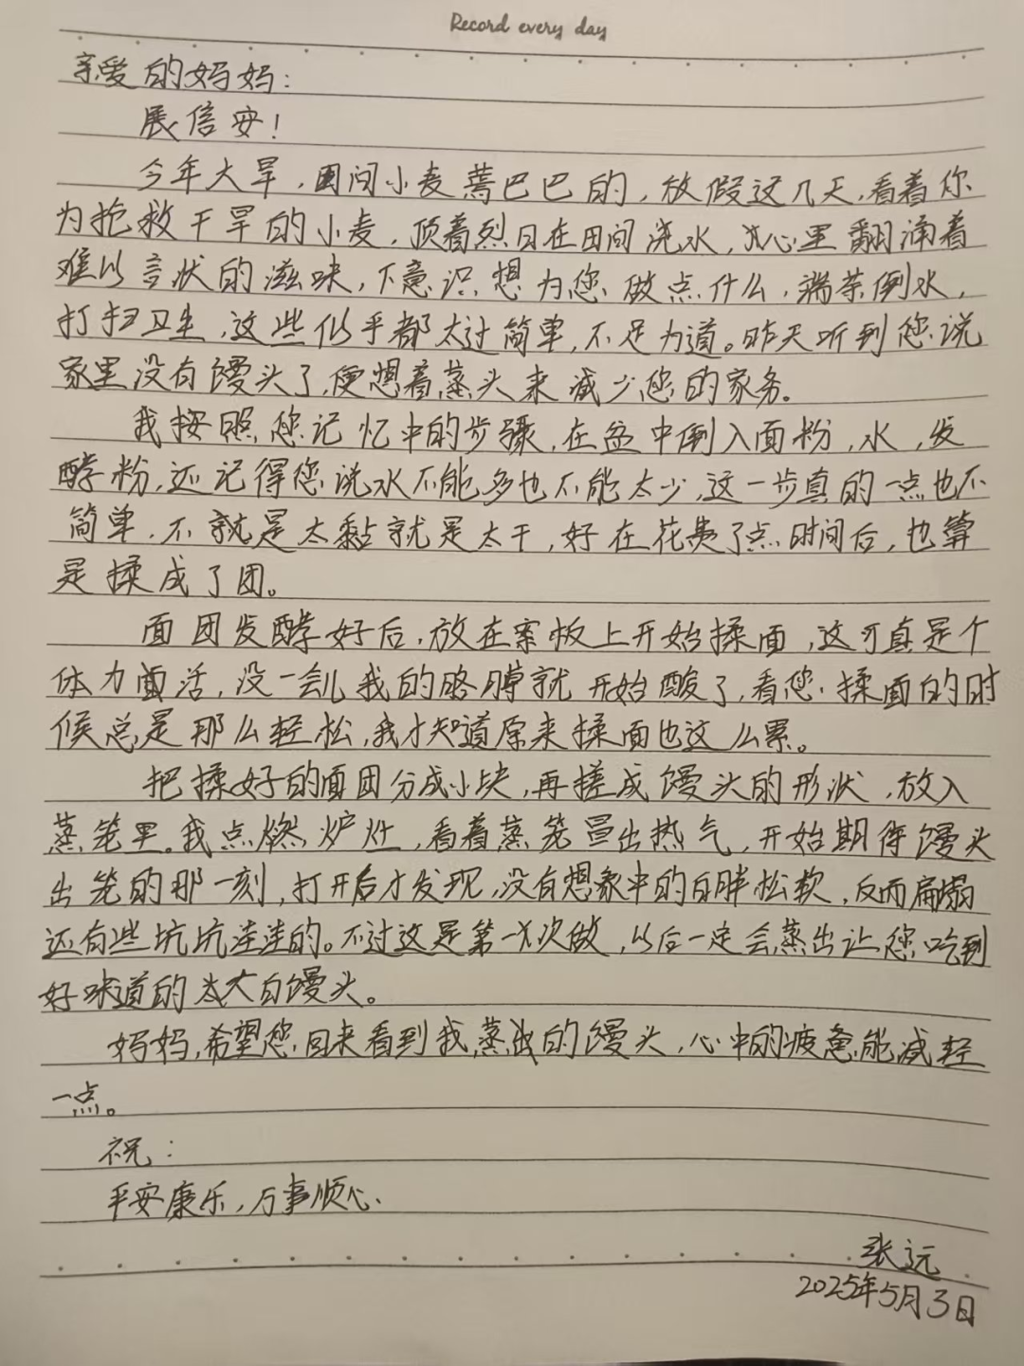 Record every day
亲爱的妈妈：
展信安！
今年大旱，田间小麦蔫巴巴的，放假这几天，看着你
为抢救干旱的小麦，顶着烈日在田间浇水，心里翻涌着
难以言状的滋味，下意识想为您做点什么，端茶倒水，
打扫卫生，这些似乎都太过简单，不足力道。昨天听到您说
家里没有馒头了，便想着蒸头来减少您的家务。
我按照您记忆中的步骤，在盆中倒入面粉，水，发
酵粉，还记得您说水不能多也不能太少，这一步真的一点也不
简单，不就是太黏就是太干，好在花费了点时间后，也算
是揉成了团。
面团发酵好后，放在案板上开始揉面，这可真是个
体力面活，没一会儿我的胳膊就开始酸了，看您揉面的时
候总是那么轻松，我才知道原来揉面也这么累。
把揉好的面团分成小块，再搓成馒头的形状，放入
蒸笼里。我点燃炉灶，看着蒸笼冒出热气，开始期待馒头
出笼的那一刻，打开后才发现，没有想象中的白胖松软，反而扁塌
还有些坑坑洼洼的。不过这是第一次做，以后一定会蒸出让您吃到
好味道的大白馒头。
妈妈，希望您回来看到我蒸出的馒头，心中的疲惫能减轻
一点。
祝：
平安康乐，万事顺心
张远
2025年5月3日